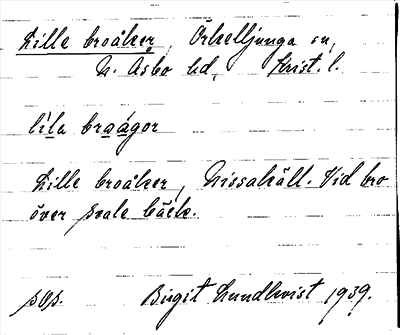 Lille broåker, Örkelljunga sn,
N. Åsbo hd, Krist. l.
lìla braágor
Lille broåker, Nissakäll. Vid bro
över svale bäck.
sOs. Birgit Lundkvist 1939.